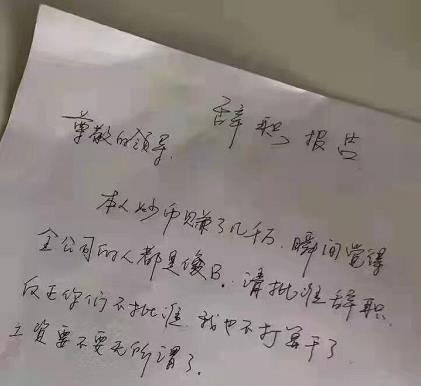 辞职报告
尊敬的领导.
本人炒币赚了几千万.瞬间觉得
全公司的人都是傻B.请批准辞职.
反正你们不批准.我也不打算干了
工资要不要无所谓了.